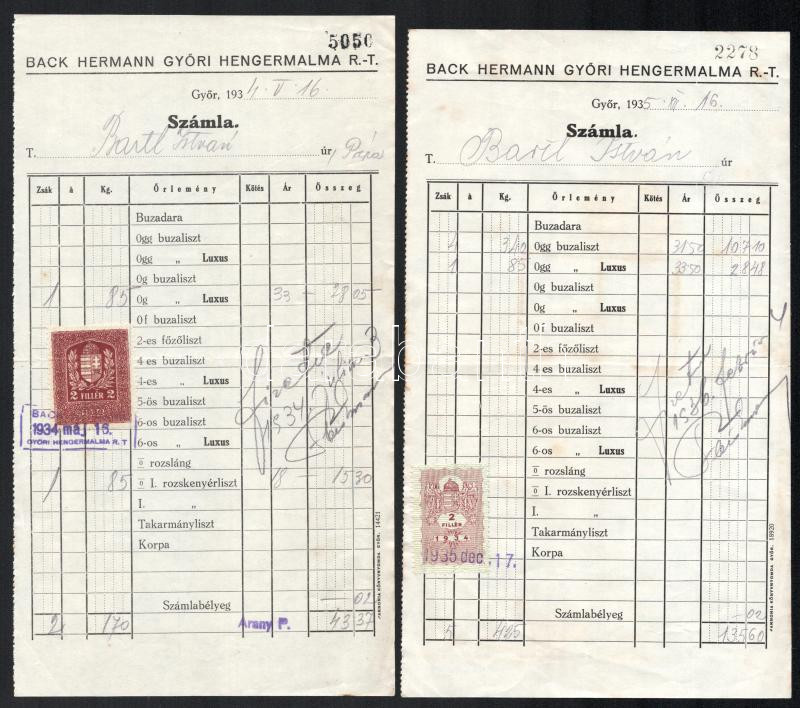 5050
BACK HERMANN GYŐRI HENGERMALMA R.-T.
Győr, 1934 V 16.
Számla.
T. Bartl István úr, Pápa
Zsák à Kg. Őrlemény Kötés Ár Összeg
Buzadara
0gg buzaliszt
0gg „ Luxus
0g buzaliszt
1 85 0g „ Luxus 33 – 2805
0f buzaliszt
2-es főzőliszt
4-es buzaliszt
4-es „ Luxus
5-ös buzaliszt
6-os buzaliszt
6-os „ Luxus
0 rozsláng
1 85 0 I. rozskenyérliszt 18 1530
I. „
Takarmányliszt
Korpa
Számlabélyeg —02
2 170 Arany P. 4337
2 FILLÉR 2
BACK
1934 máj 16.
GYŐRI HENGERMALMA R.T
Fizetve
1934
PANNONIA KÖNYVNYOMDA GYŐR. 14421
2278
BACK HERMANN GYŐRI HENGERMALMA R.-T.
Győr, 1935 XII 16.
Számla.
T. Bartl István úr
Zsák à Kg. Őrlemény Kötés Ár Összeg
Buzadara
4 340 0gg buzaliszt 3150 10710
1 85 0gg „ Luxus 3350 2848
0g buzaliszt
0g „ Luxus
0f buzaliszt
2-es főzőliszt
4-es buzaliszt
4-es „ Luxus
5-ös buzaliszt
6-os buzaliszt
6-os „ Luxus
0 rozsláng
0 I. rozskenyérliszt
I. „
Takarmányliszt
Korpa
Számlabélyeg —02
5 425 13560
2
FILLÉR
1934
1935 dec. 17.
PANNONIA KÖNYVNYOMDA GYŐR. 18920